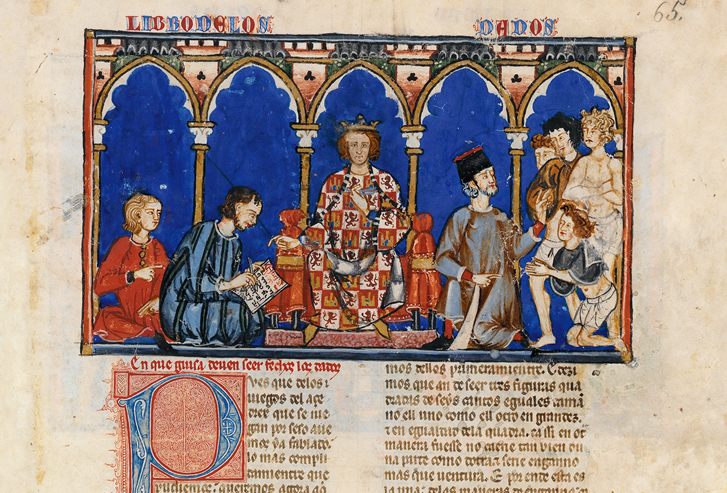 LIBRO DE LOS DADOS
65.
En que guisa deven seer fechos los dados
Pves que delos i
uiegos del açe
drex que se iue
gan por seso aue
mos ya fablado.
lo mas compli
damientre que
pudiemos: queremos agora de
mos dellos primeramientre. E dezi
mos que an de seer tres figuras qua
dradas de seys cantos eguales tama
no ell uno como ell otro en grandez.
en egualtat dela quadra. ca si en ot
manera fuesse no caerie tan bien ou
na parte como dotra: serie enganno
mas que uentura. E por ende esta es